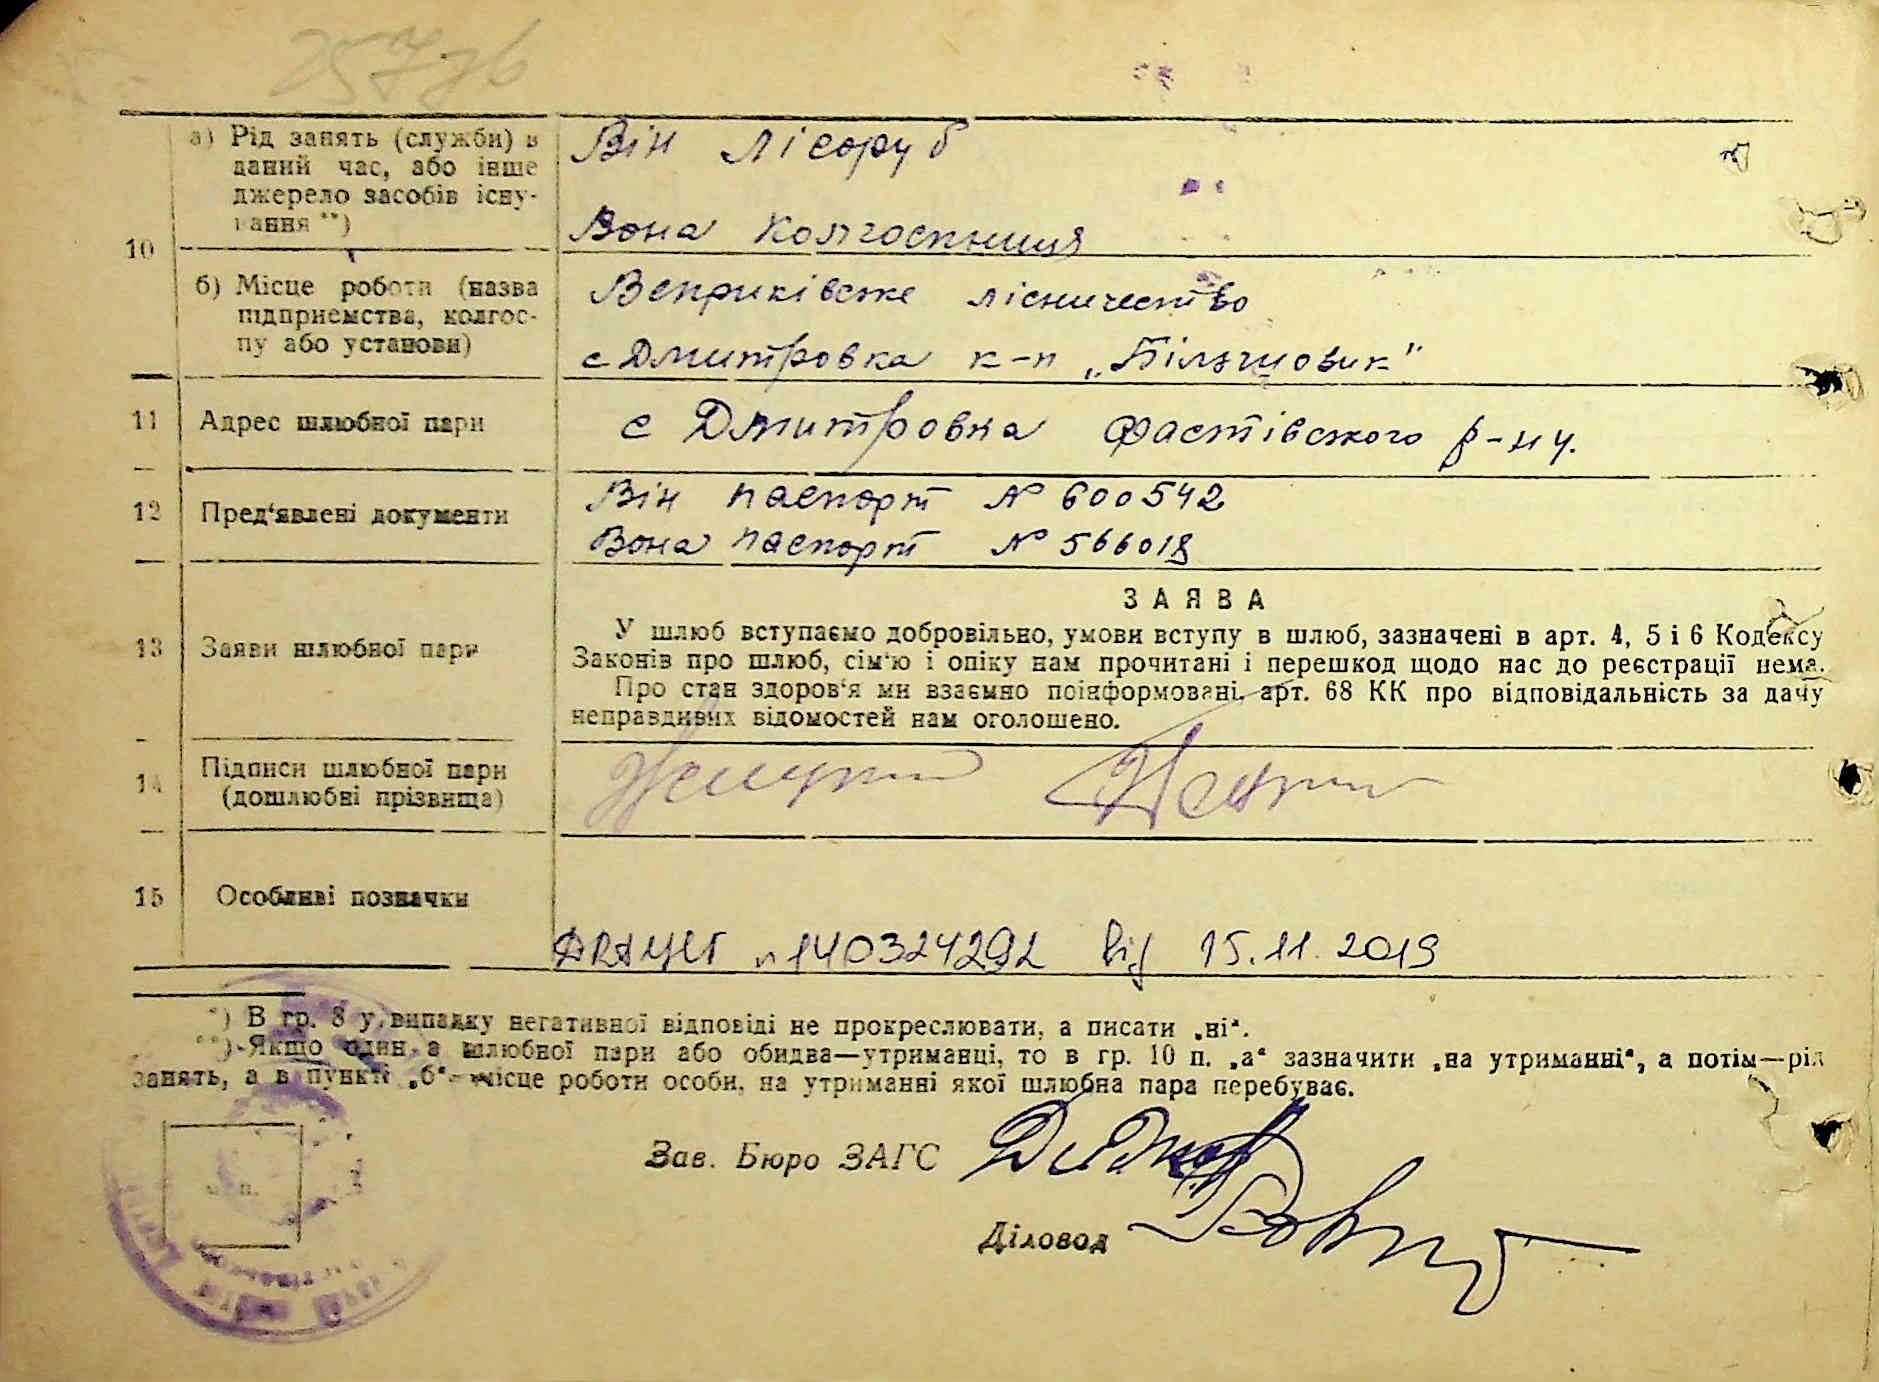 10
а) Рід занять (служби) в
даний час, або інше
джерело засобів існу-
вання **)
Він лісоруб
Вона колгоспниця
б) Місце роботи (назва
підприємства, колгос-
пу або установи)
Веприківське лісничество
с Дмитровка к-п „Більшовик"
11 Адрес шлюбної пари
с Дмитровка Фастівського р-ну.
12 Пред‘явлені документи
Він паспорт № 600542
Вона паспорт № 566018
13 Заяви шлюбної пари
ЗАЯВА
У шлюб вступаємо добровільно, умови вступу в шлюб, зазначені в арт. 4, 5 і 6 Кодексу
Законів про шлюб, сім‘ю і опіку нам прочитані і перешкод щодо нас до реєстрації нема.
Про стан здоров‘я ми взаємно поінформовані, арт. 68 КК про відповідальність за дачу
неправдивих відомостей нам оголошено.
14 Підписи шлюбної пари
(дошлюбні прізвища)
15 Особливі позначки
ДРАЦСГ № 140324292 від 15.11.2019
*) В гр. 8 у випадку негативної відповіді не прокреслювати, а писати „ні“.
**) Якщо один з шлюбної пари або обидва—утриманці, то в гр. 10 п. „а“ зазначити „на утриманні“, а потім—рід
занять, а в пункті „б“—місце роботи особи, на утриманні якої шлюбна пара перебуває.
Зав. Бюро ЗАГС
Діловод
м. п.